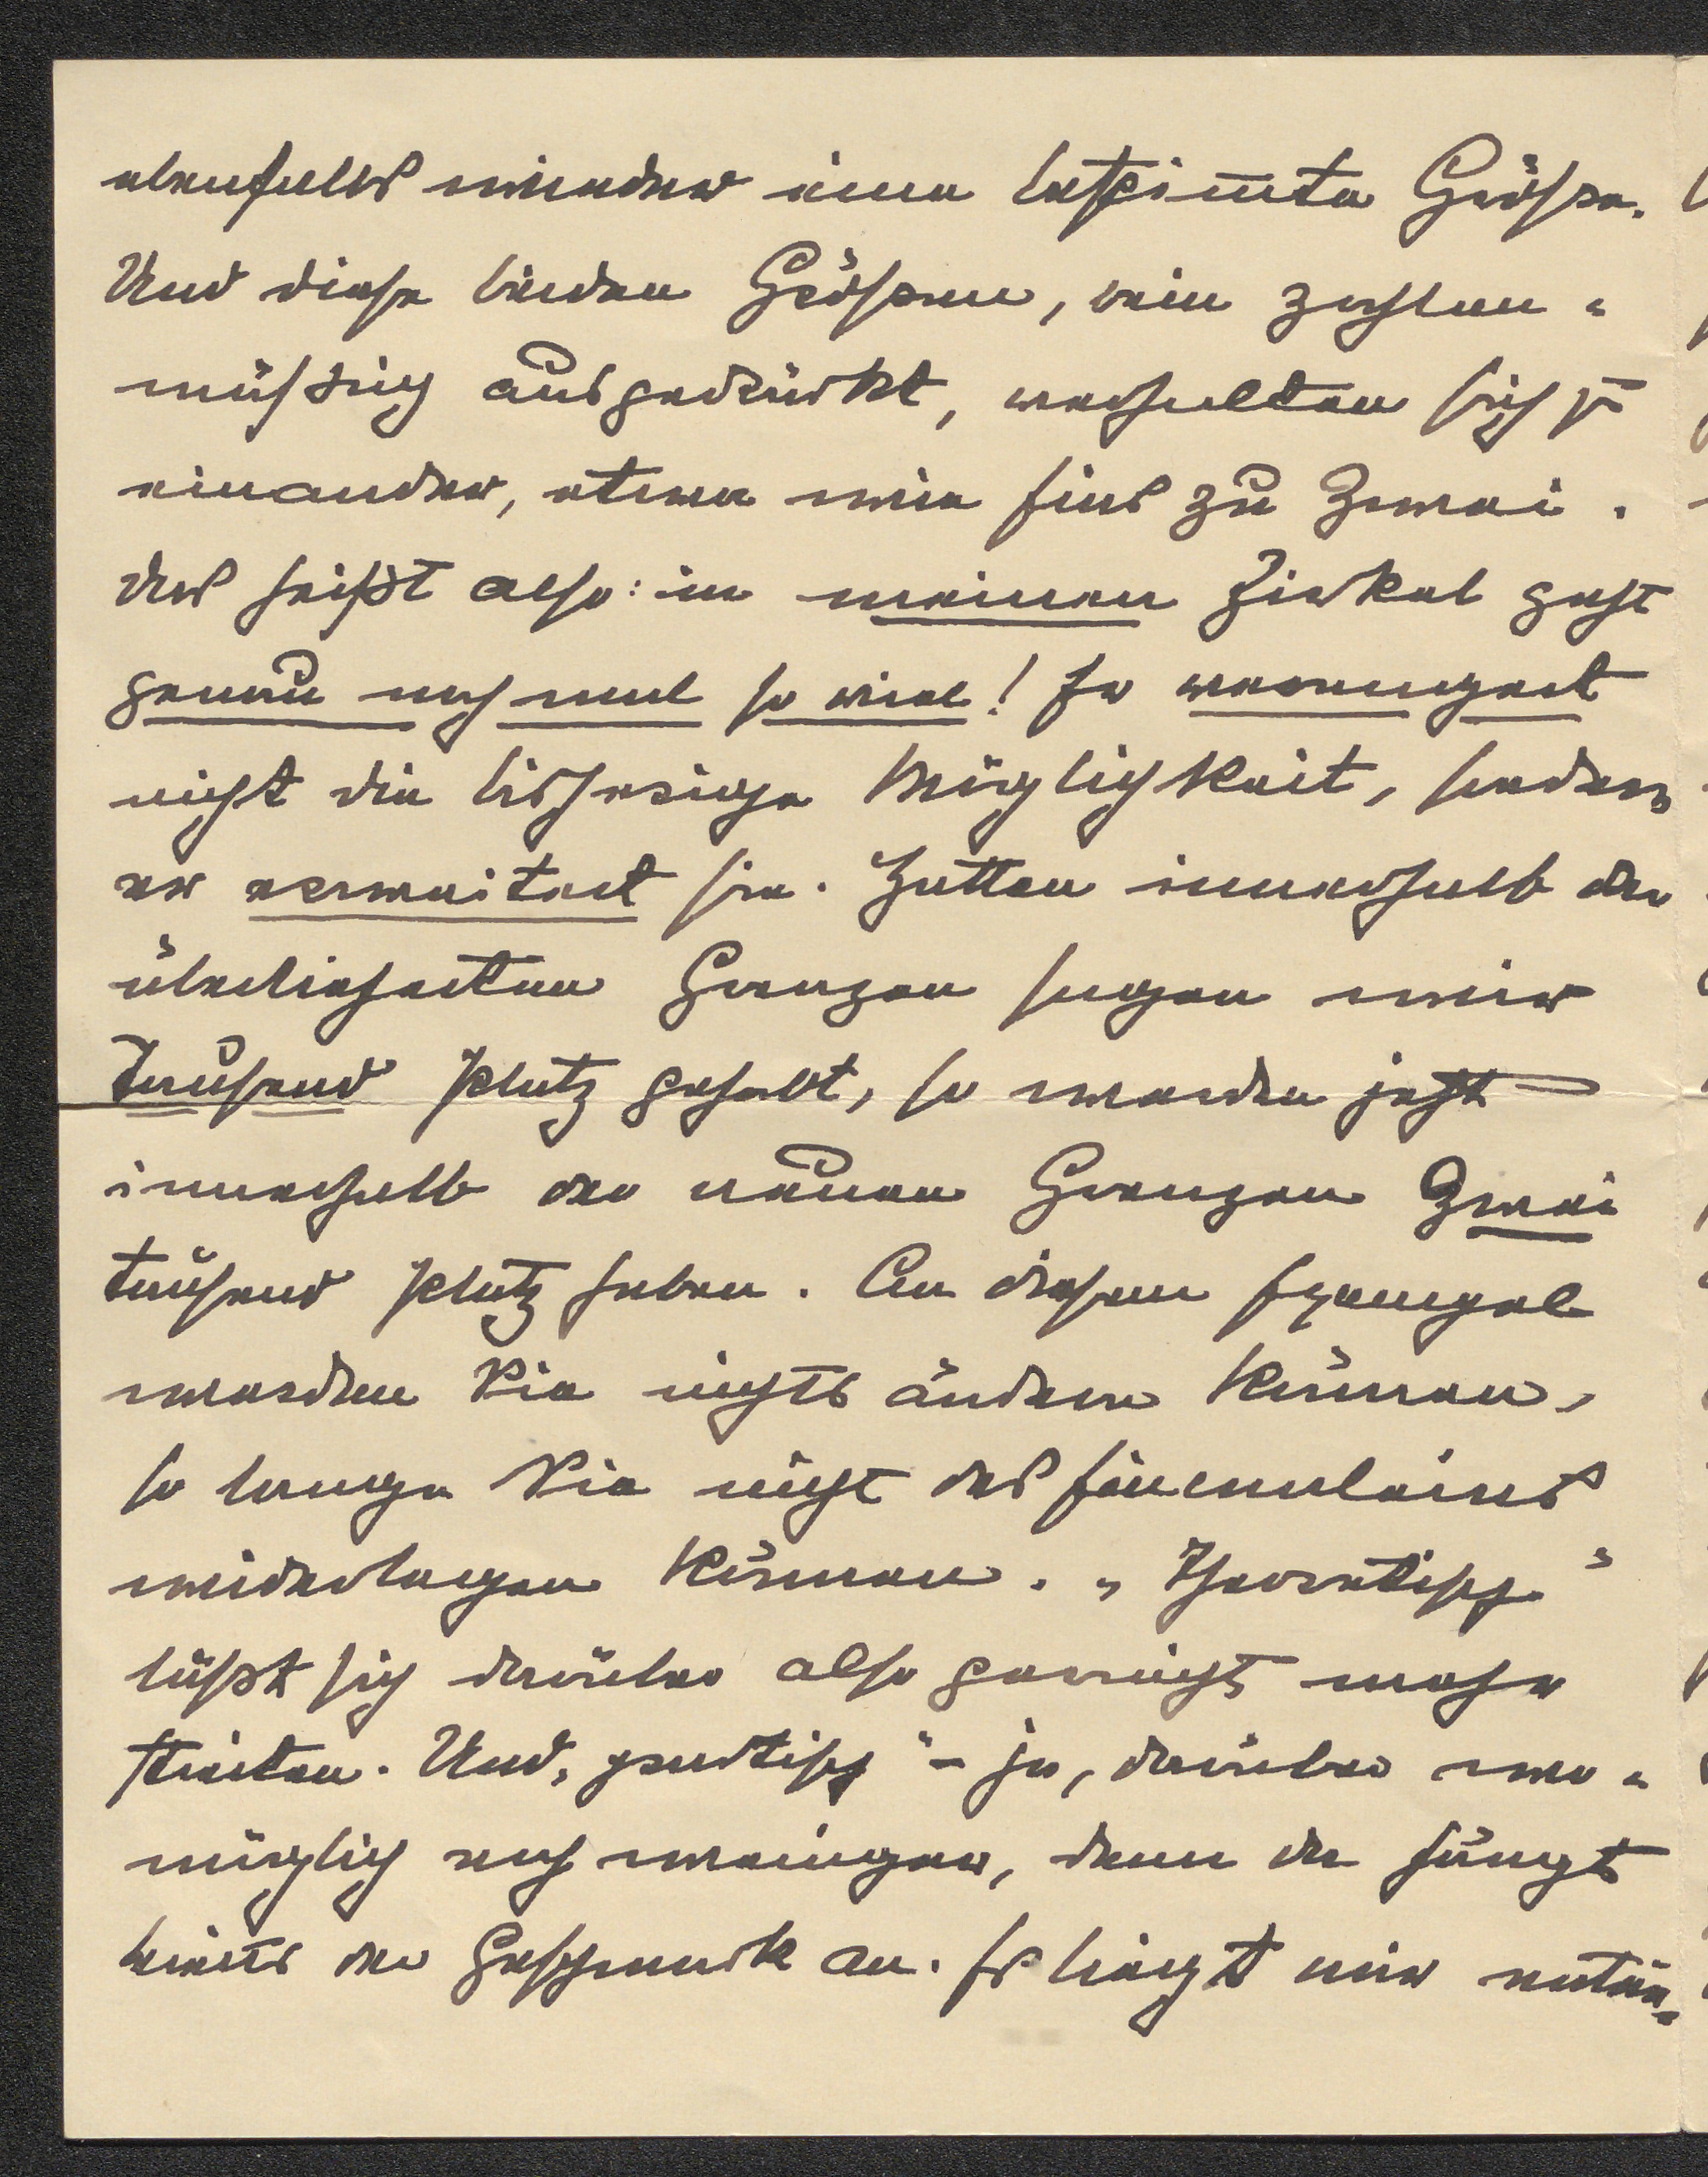 ebenfalls wieder eine bestim̅te Grösse.
Und diese beiden Grössen, rein zahlen-
mässig ausgedrückt, verhielten sich zu
einander, etwa wie Eins zu Zwei.
Das heisst also: in meinen Zirkel geht
genau noch mal so viel! Er verengert
nicht die bisherige Möglichkeit, sondern
er erweitert sie. Hatten innerhalb der
überlieferten Grenzen sagen wir
Tausend Platz gehabt, so werden jetzt
innerhalb der neuen Grenzen Zwei
tausend Platz haben. An diesem Exempel
werden Sie nichts ändern können,
so lange Sie nicht das Einmaleins
widerlegen können. „Theoretisch“
lässt sich darüber also garnicht mehr
streiten. Und „praktisch“ – ja, darüber wo-
möglich noch weniger, denn da fängt
bereits der Geschmack an. Es liegt mir natür-